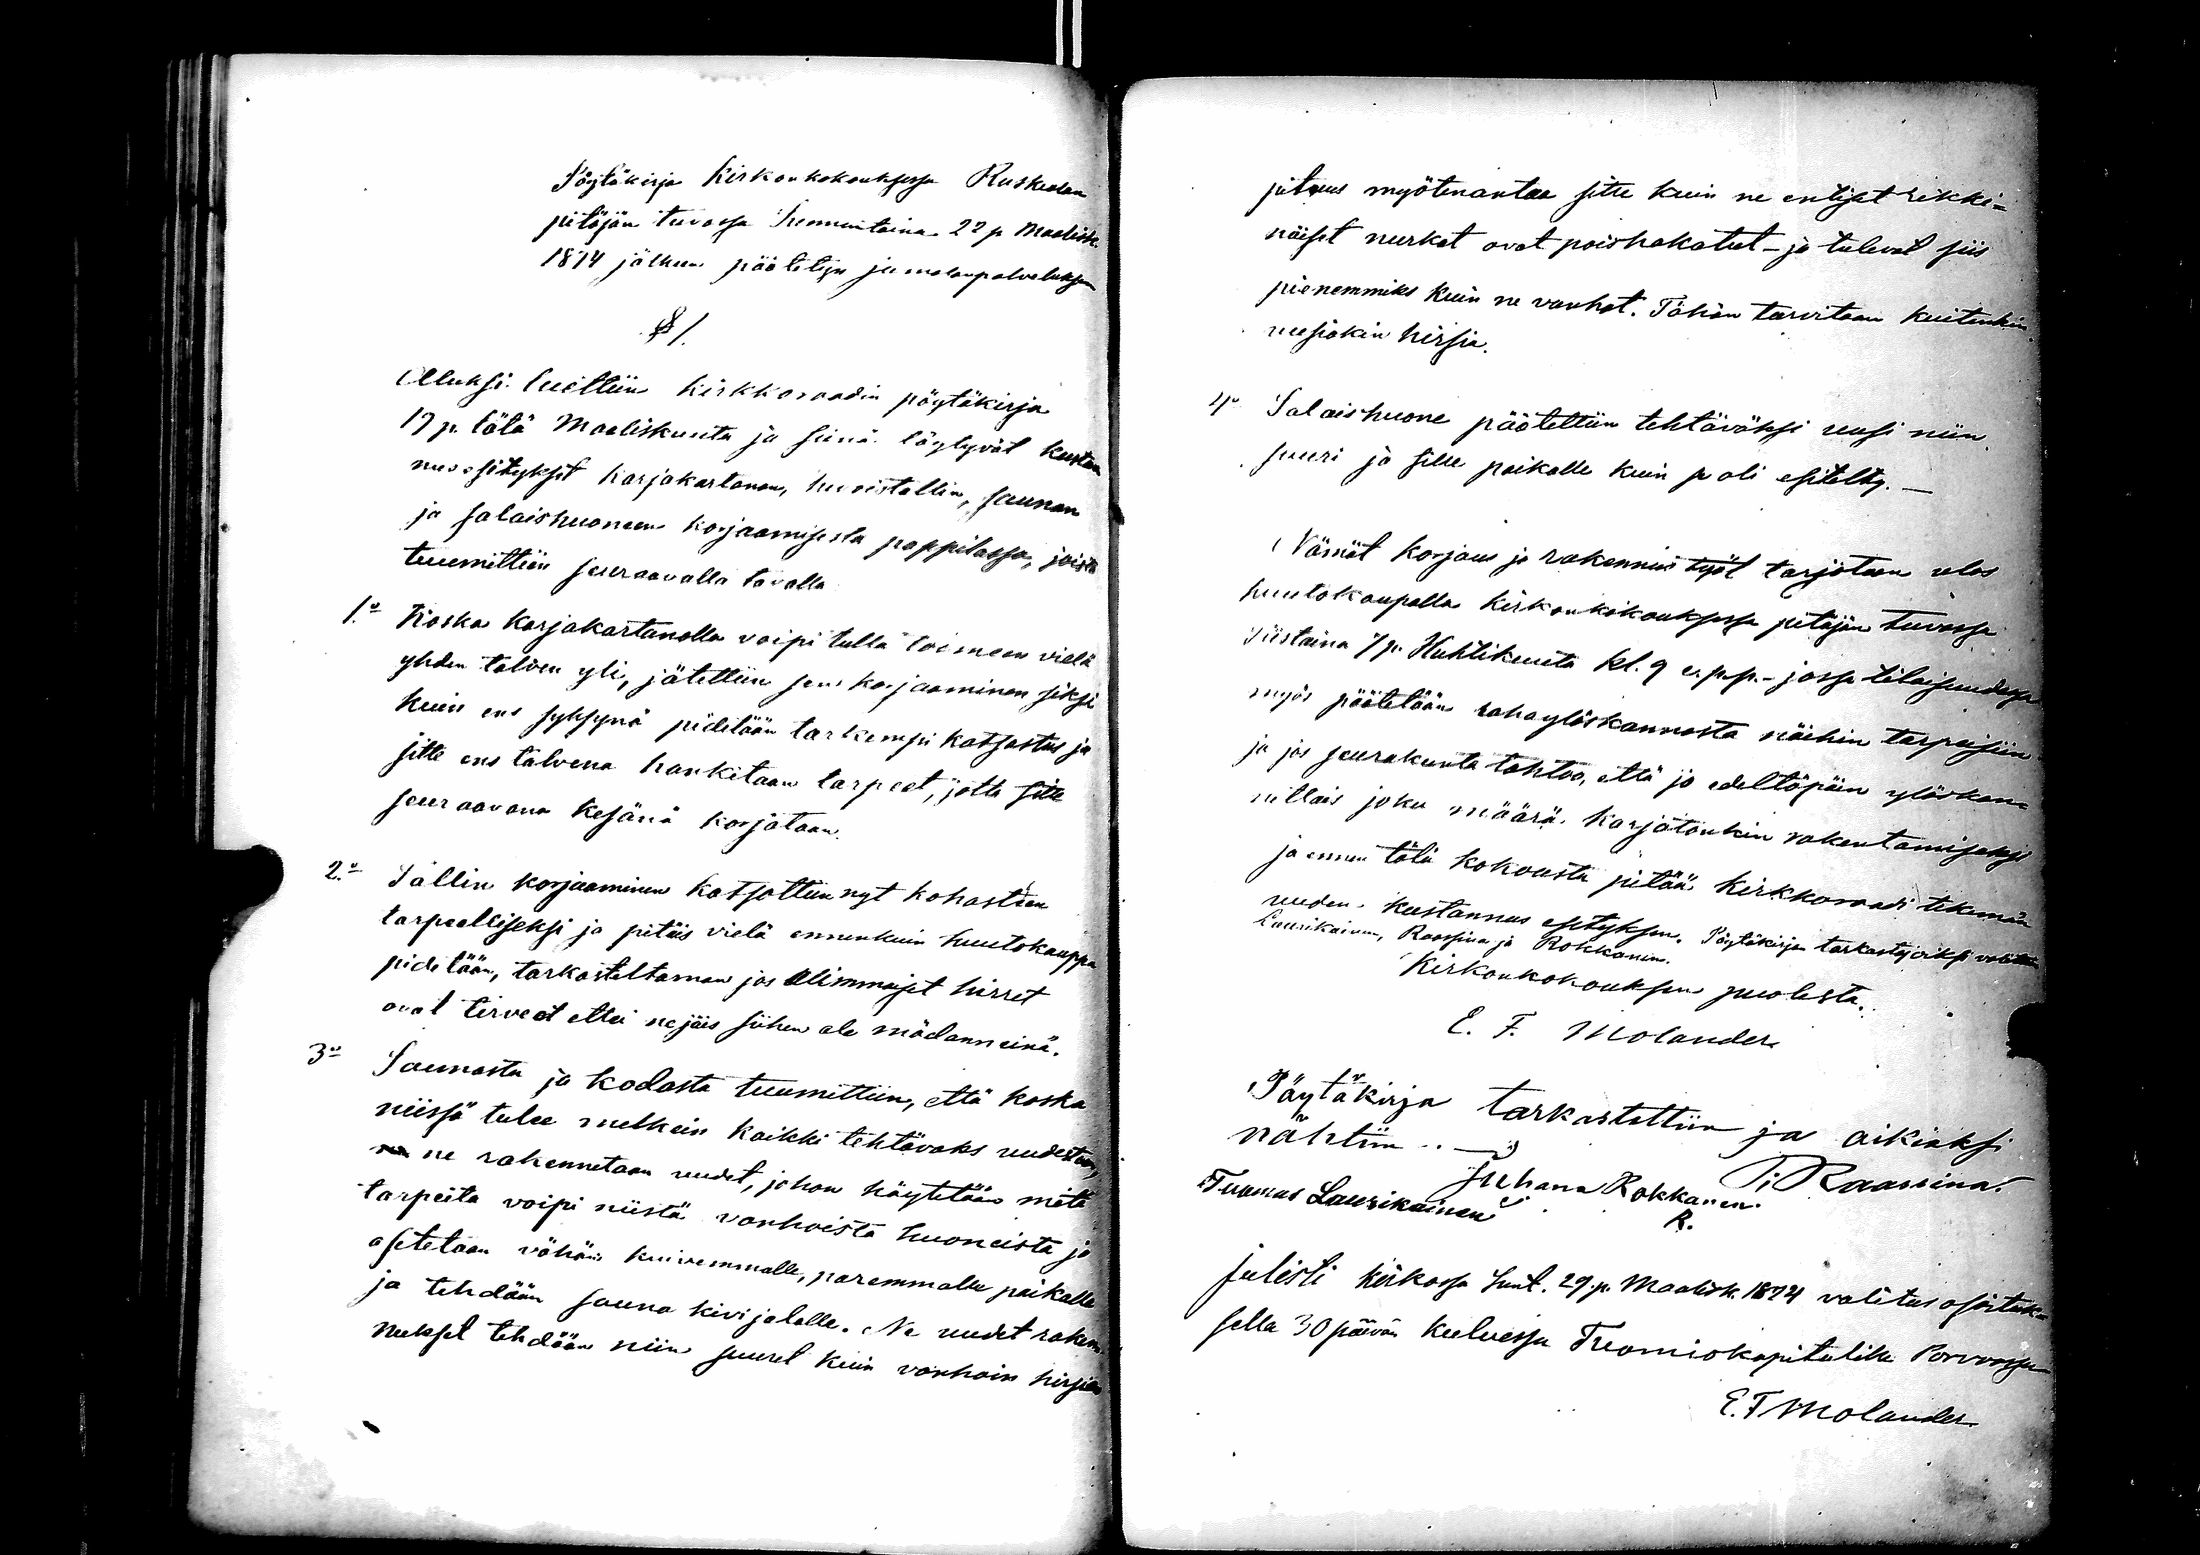 Pöytäkirja Kirkonkokouksessa Ruskealan
pitäjän tuvassa Sunnuntaina 22 p Maalisk.
1874 jälkeen päätetyn jumalanpalveluksen
§ 1.
Aluksi luettiin kirkkoraadin pöytäkirja
17 p. tätä Maaliskuuta ja siinä löytyvät kustan
nusesitykset karjakartanon, huvistallin, saunan
ja salaishuoneen korjaamisesta pappilassa, joista
tuumittiin seuraavalla tavalla
1:o Koska karjakartanolla voipi tulla toimeen vielä
yhden talven yli, jätettiin sen korjaaminen siksi
kuin ens syksynä pidetään tarkempi katsastus ja
sitte ens talvena hankitaan tarpeet, jotta sitte
seuraavana kesänä korjataan.
2:o Tallin korjaaminen katsottiin nyt kohastaan
tarpeelliseksi ja pitäis vielä ennenkuin huutokauppa
pidetään, tarkasteltaman jos alimmaiset hirret
ovat terveet ettei ne jäis siihen ala mädänneinä.
3:o Saunasta ja kodasta tuumittiin, että koska
niissä tulee melkein kaikki tehtäväks uudestaan,
ne rakennetaan uudet, johon käytetään mitä
tarpeita voipi niistä vanhoista huoneista ja
asetetaan vähän kuivemmalle, paremmalle paikalle
ja tehdään sauna kivijalalle. Ne uudet raken
nukset tehdään niin suuret kuin vanhain hirsien
pituus myötenantaa sitte kuin ne entiset rikki-
näiset nurkat ovat poishakatut - ja tulevat siis
pienemmiks kuin ne vanhat. Tähän tarvitaan kuitenkin
uusiakin hirsia.
4:o Salaishuone päätettiin tehtäväksi uusi niin
suuri ja sille paikalle kuin se oli esitelty. —
Nämät korjaus ja rakennus työt tarjotaan ulos
huutokaupalla kirkonkokouksessa pitäjän tuvassa
tiistaina 7 p. Huhtikuuta kl. 9 e.p.p. - jossa tilaisuudessa
myös päätetään rahaylöskannosta näihin tarpeisiin
ja jos seurakunta tahtoo, että jo edeltäpäin ylöskan-
nettais joku määrä karjatonkin rakentamiseksi
ja ennen tätä kokousta pitää kirkkoraadi tekemän
uuden kustannus esityksen. Pöytäkirjan tarkastajoiksi valittiin
Laurikainen, Raassina ja Rokkanen.
Kirkonkokouksen puolesta.
E. F. Molander
Pöytäkirja tarkastettiin ja oikiaksi
nähtiin. —
Tuomas Laurikainen Juhana Rokkanen. P. Raassina.
R.
Julisti kirkossa Sunt. 29. p. Maalisk. 1874 valitus osotuk-
sella 30 päivän kuluessa Tuomiokapitulille Porvoossa
E. F Molander